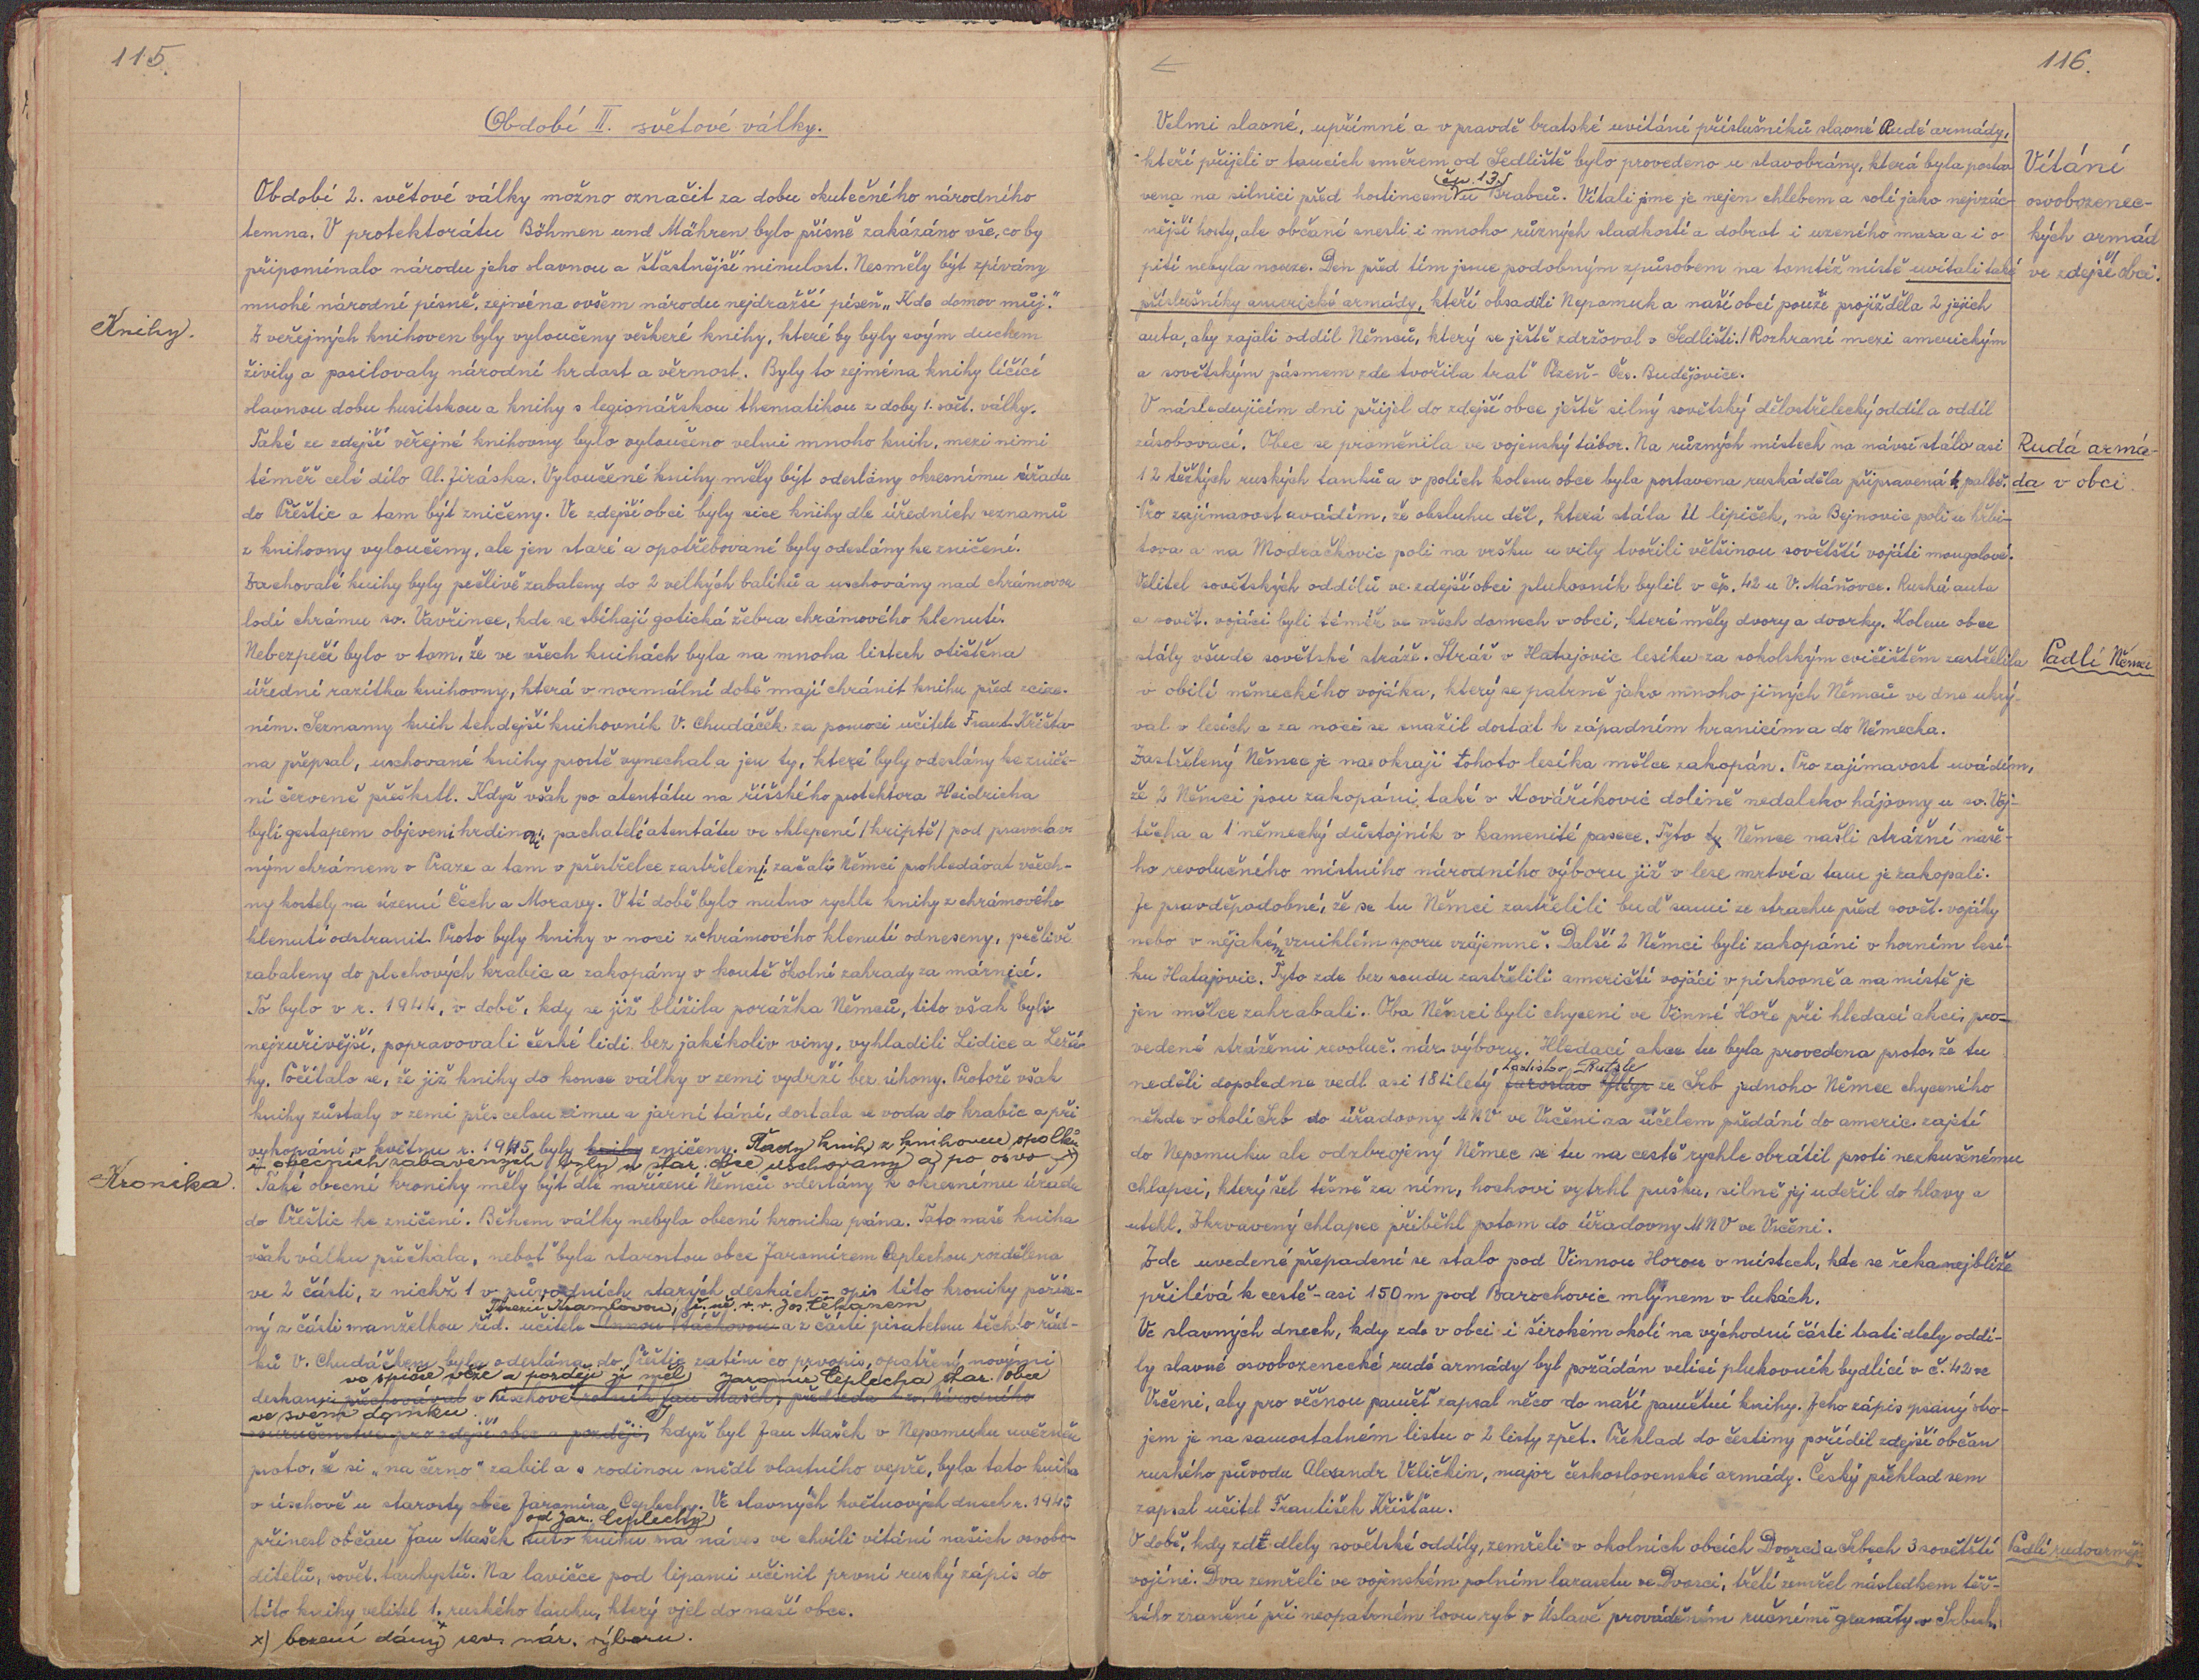 115.
Období II. světové války.
Období 2. světové války možno označit za dobu skutečného národního
temna. V protektorátu Böhmen und Mähren bylo přísně zakázáno vše, co by
připomínalo národu jeho slavnou a šťastnější minulost. Nesměly být zpívány
mnohé národní písně, zejména ovšem národu nejdražší píseň „Kde domov můj."
Knihy.
Z veřejných knihoven byly vyloučeny veškeré knihy, které by byly svým duchem
živily a posilovaly národní hrdost a věrnost. Byly to zejména knihy líčící
slavnou dobu husitskou a knihy s legionářskou thematikou z doby 1. svět. války.
Také ze zdejší veřejné knihovny bylo vyloučeno velmi mnoho knih, mezi nimi
téměř celé dílo Al. Jiráska. Vyloučené knihy měly být odeslány okresnímu úřadu
do Přeštic a tam být zničeny. Ve zdejší obci byly sice knihy dle úředních seznamů
z knihovny vyloučeny, ale jen staré a opotřebované byly odeslány ke zničení.
Zachovalé knihy byly pečlivě zabaleny do 2 velkých balíků a uschovány nad chrámovou
lodí chrámu sv. Vavřince, kde se sbíhají gotická žebra chrámového klenutí.
Nebezpečí bylo v tom, že ve všech knihách byla na mnoha listech otištěna
úřední razítka knihovny, která v normální době mají chránit knihu před zcize-
ním. Seznamy knih tehdejší knihovník V. Chudáček za pomoci učitele Frant. Křišťa-
na přepsal, uschované knihy prostě vynechal a jen ty, které byly odeslány ke zniče-
ní červeně přeškrtl. Když však po atentátu na říšského protektora Heidricha
byli gestapem objeveni hrdinní pachatelé atentátu ve sklepení /kriptě/ pod pravoslav-
ným chrámem v Praze a tam v přestřelce zastřeleni, začali Němci prohledávat všech-
ny kostely na území Čech a Moravy. V té době bylo nutno rychle knihy z chrámového
klenutí odstranit. Proto byly knihy v noci z chrámového klenutí odneseny, pečlivě
zabaleny do plechových krabic a zakopány v koutě školní zahrady za márnicí.
To bylo v r. 1944, v době, kdy se již blížila porážka Němců, tito však byli
nejzuřivější, popravovali české lidi bez jakékoliv viny, vyhladili Lidice a Ležá-
ky. Počítalo se, že již knihy do konce války v zemi vydrží bez úhony. Protože však
knihy zůstaly v zemi přes celou zimu a jarní tání, dostala se voda do krabic a při
vykopání v květnu r. 1945 byly knihy zničeny. Řady knih z knihoven spolků
i obecních zabavených byly u star. obce uschovány a po osvo- x)
Kronika.
Také obecní kroniky měly být dle nařízení Němců odeslány k okresnímu úřadu
do Přeštic ke zničení. Během války nebyla obecní kronika psána. Tato naše kniha
však válku přečkala, neboť byla starostou obce Jaromírem Ceplechou rozdělena
ve 2 části, z nichž 1 v původních starých deskách - opis této kroniky poříze-
Terezií Kramlovou, ř. uč. v. v. Jos. Čekanem
ný z části manželkou říd. učitele Annou Ptáčkovou a z části pisatelem těchto řád-
ků V. Chudáčkem byla odeslána do Přeštic zatím co prvopis, opatřený novými
ve špičce věže a později ji měl Jaromír Ceplecha star. obce
deskami přechovával v úschově rolník Jan Mašek, předseda t. zv. Národního
ve svém domku.
souručenství pro zdejší obec a později, když byl Jan Mašek v Nepomuku uvězněn
proto, že si „na černo" zabil a s rodinou snědl vlastního vepře, byla tato kniha
v úschově u starosty obce Jaromíra Ceplechy. Ve slavných květnových dnech r. 1945
od Jar. Ceplechy
přinesl občan Jan Mašek tuto knihu na náves ve chvíli vítání našich osvobo-
ditelů, sovět. tankystů. Na lavičce pod lípami učinil první ruský zápis do
této knihy velitel 1. ruského tanku, který vjel do naší obce.
x) bození dány rev. nár. výboru.
116.
Velmi slavné, upřímné a v pravdě bratské uvítání příslušníků slavné Rudé armády,
kteří přijeli v tancích směrem od Sedliště bylo provedeno u slavobrány, která byla posta-
čp. 13
vena na silnici před hostincem u Brabců. Vítali jsme je nejen chlebem a solí jako nejvzác-
nější hosty, ale občané snesli i mnoho různých sladkostí a dobrot i uzeného masa a i o
pití nebyla nouze. Den před tím jsme podobným způsobem na tomtéž místě uvítali také
příslušníky americké armády, kteří obsadili Nepomuk a naší obcí pouze projížděla 2 jejich
auta, aby zajali oddíl Němců, který se ještě zdržoval v Sedlišti. / Rozhraní mezi americkým
a sovětským pásmem zde tvořila trať Plzeň - Čes. Budějovice.
Vítání
osvobozenec-
kých armád
ve zdejší obci.
V následujícím dni přijel do zdejší obce ještě silný sovětský dělostřelecký oddíl a oddíl
zásobovací. Obec se proměnila ve vojenský tábor. Na různých místech na návsi stálo asi
12 těžkých ruských tanků a v polích kolem obce byla postavena ruská děla připravená k palbě.
Rudá armá-
da v obci.
Pro zajímavost uvádím, že obsluhu děl, která stála U lipiček, na Bejnovic poli u hřbi-
tova a na Modráčkovic poli na vršku u vily tvořili většinou sovětští vojáti mongolové.
Velitel sovětských oddílů ve zdejší obci plukovník bydlil v čp. 42 u V. Máňovce. Ruská auta
a sovět. vojáci byli téměř ve všech domech v obci, které měly dvory a dvorky. Kolem obce
stály všude sovětské stráže. Stráž v Hatajovic lesíku za sokolským cvičištěm zastřelila
Padlí Němci
v obilí německého vojáka, který se patrně jako mnoho jiných Němců ve dne ukrý-
val v lesích a za noci se snažil dostat k západním hranicím a do Německa.
Zastřelený Němec je na okraji tohoto lesíka mělce zakopán. Pro zajímavost uvádím,
že 2 Němci jsou zakopáni také v Kováříkovic dolině nedaleko hájovny u sv. Voj-
těcha a 1 německý důstojník v kamenité pasece. Tyto ty Němce našli strážní naše-
ho revolučního místního národního výboru již v lese mrtvé a tam je zakopali.
Je pravděpodobné, že se tu Němci zastřelili buď sami ze strachu před sovět. vojáky
nebo v nějakém vzniklém sporu vzájemně. Další 2 Němci byli zakopáni v horním lesí-
ku Hatajovic. Tyto zde bez soudu zastřelili američtí vojáci v pískovně a na místě je
jen mělce zahrabali. Oba Němci byli chyceni ve Vinné Hoře při hledací akci, pro-
vedené strážemi revoluč. nár. výboru. Hledací akce tu byla provedena proto, že tu
Ladislav
neděli dopoledne vedl asi 18tiletý Jaroslav ze Srb jednoho Němce chyceného
někde v okolí Srb do úřadovny MNV ve Vrčeni za účelem předání do americ. zajetí
do Nepomuku ale odzbrojený Němec se tu na cestě rychle obrátil proti nezkušenému
chlapci, který šel těsně za ním, hochovi vytrhl pušku, silně jej udeřil do hlavy a
utekl. Zkrvavený chlapec přiběhl potom do úřadovny MNV ve Vrčeni.
Zde uvedené přepadení se stalo pod Vinnou Horou v místech, kde se řeka nejblíže
přilévá k cestě - asi 150 m pod Barochovic mlýnem v lukách.
Ve slavných dnech, kdy zde v obci i širokém okolí na východní části trati dlely oddí-
ly slavné osvobozenecké rudé armády byl požádán velící plukovník bydlící v č. 42 ve
Vrčeni, aby pro věčnou paměť zapsal něco do naší pamětní knihy. Jeho zápis psaný obo-
jem je na samostatném listu o 2 listy zpět. Překlad do češtiny pořídil zdejší občan
ruského původu Alexandr Veličkin, major československé armády. Český překlad sem
zapsal učitel František Křišťan.
V době, kdy zde dlely sovětské oddíly, zemřeli v okolních obcích Dvorci a Srbech 3 sovětští
Padlí rudoarmějci
vojíni. Dva zemřeli ve vojenském polním lazaretu ve Dvorci, třetí zemřel následkem těž-
kého zranění při neopatrném lovu ryb v Úslavě prováděném ručními granáty v Srbech.